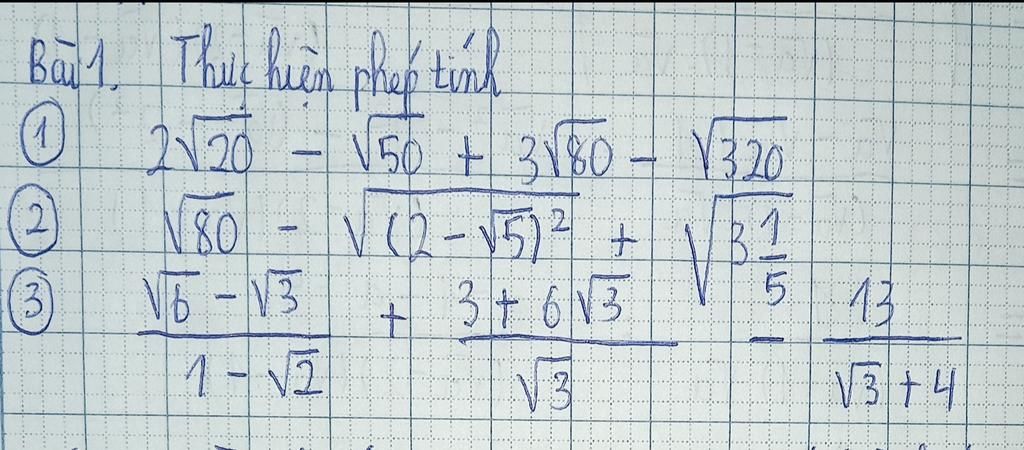 Bài 1. Thực hiện phép tính
① 2√20 - √50 + 3√80 - √320
② √80 - √(2-√5)² + √3 1/5
③ (√6 - √3)/(1 - √2) + (3 + 6√3)/√3 - 13/(√3 + 4)